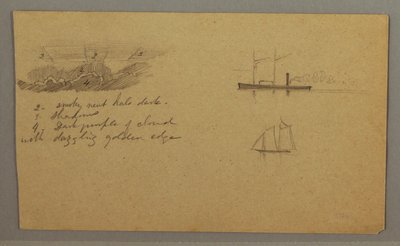 2- smoky neut halo dark.
3. Shadows
4. Dark purple of cloud
with dazzling golden edge